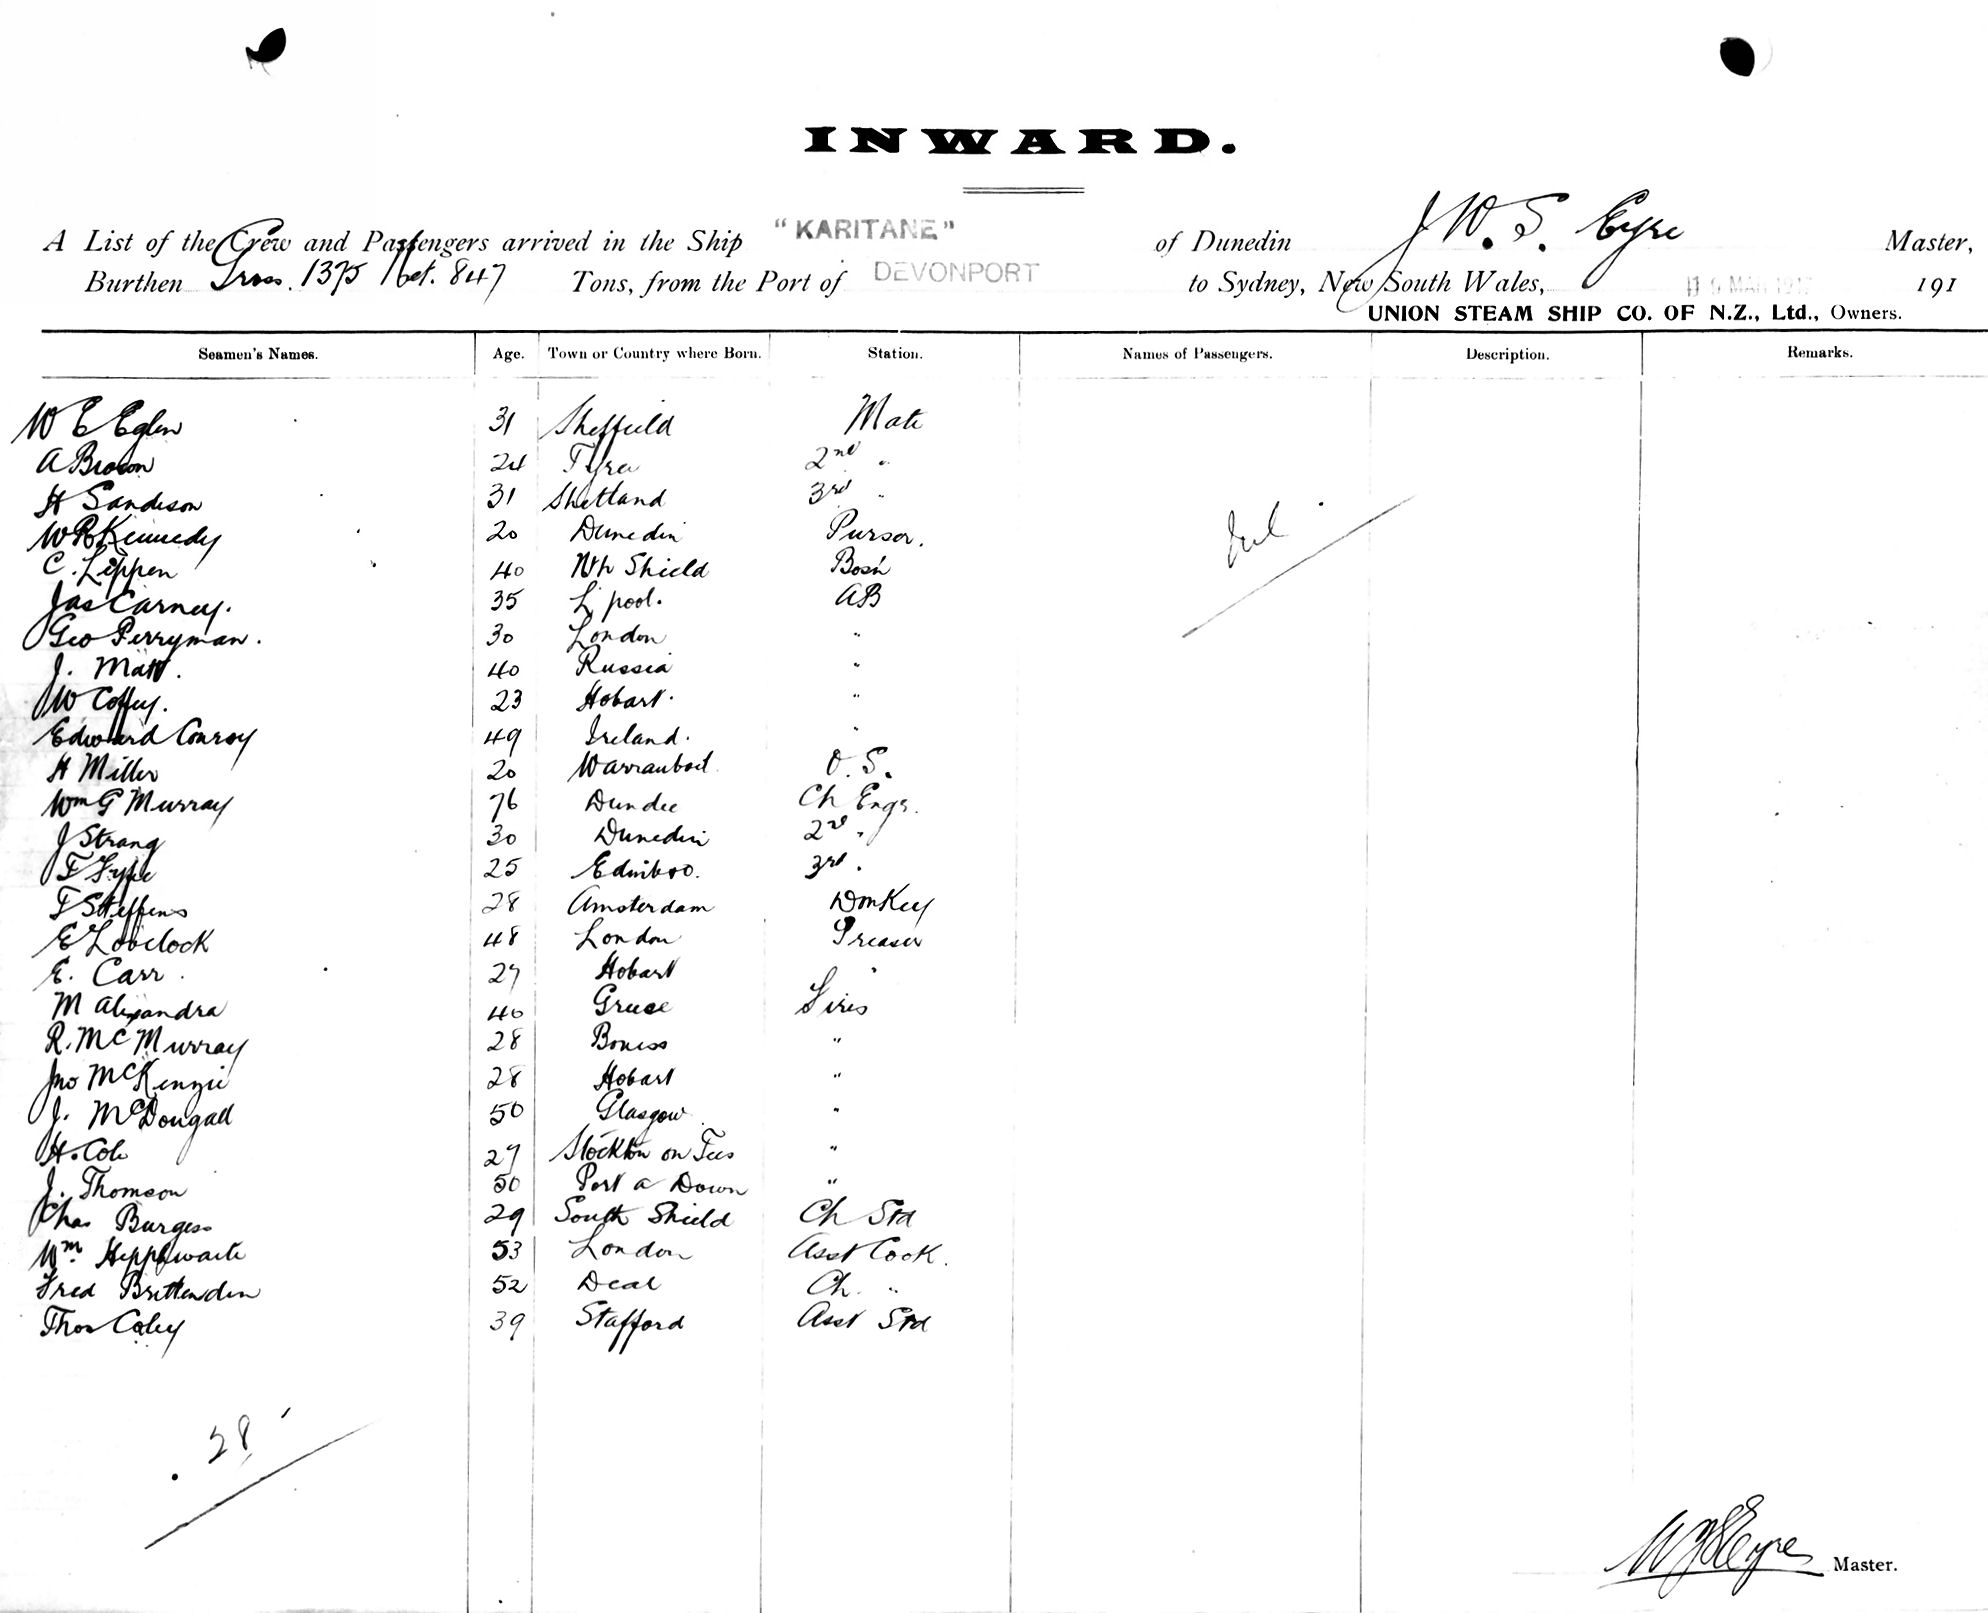 INWARD.
A List of the Crew and Passengers arrived in the Ship "KARITANE" of Dunedin J W. S. Eyre Master,
Burthen Gross. 1375 Net. 847 Tons, from the Port of DEVONPORT to Sydney, New South Wales, MAR 191
UNION STEAM SHIP CO. OF N.Z., Ltd., Owners.
Seamen's Names. Age. Town or Country where Born. Station. Names of Passengers. Description. Remarks.
W E Eglen 31 Sheffield Mate
A Brown 24 2nd "
H Sandison 31 Shetland 3rd "
W R Kennedy 20 Dunedin Purser.
C. Lippen 40 Nh Shield Bosn
Jas Carney. 35 L'pool. AB
Geo Perryman. 30 London "
J. Matt. 40 Russia "
W Coffey. 23 Hobart. "
Edward Conroy 49 Ireland. "
H Miller 20 O. S.
Wm G Murray 76 Dundee Ch Engr.
J Strang 30 Dunedin 2nd "
F Fyfe 25 Edinboro. 3rd .
F Steffens 28 Amsterdam Donkey
E Lovelock 48 London Greaser
E. Carr. 27 Hobart "
M Alexandra 40 Greece Fires
R. McMurray 28 Boness "
Jno McKenzie 28 Hobart "
J. McDougall 50 Glasgow "
H. Cole 27 Stockton on Tees "
J. Thomson 50 Port a Down "
Chas Burgess 29 South Shield Ch Std
Wm Hepplwaite 53 London Asst Cook.
Fred Brittenden 52 Deal Ch. "
Thos Coley 39 Stafford Asst Std
Nil
28
W J S Eyre Master.